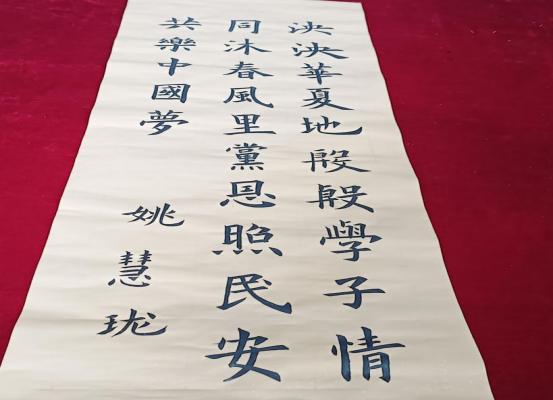 泱泱華夏地殷殷學子情
同沐春風里黨恩照民安
共樂中國夢
姚慧珑